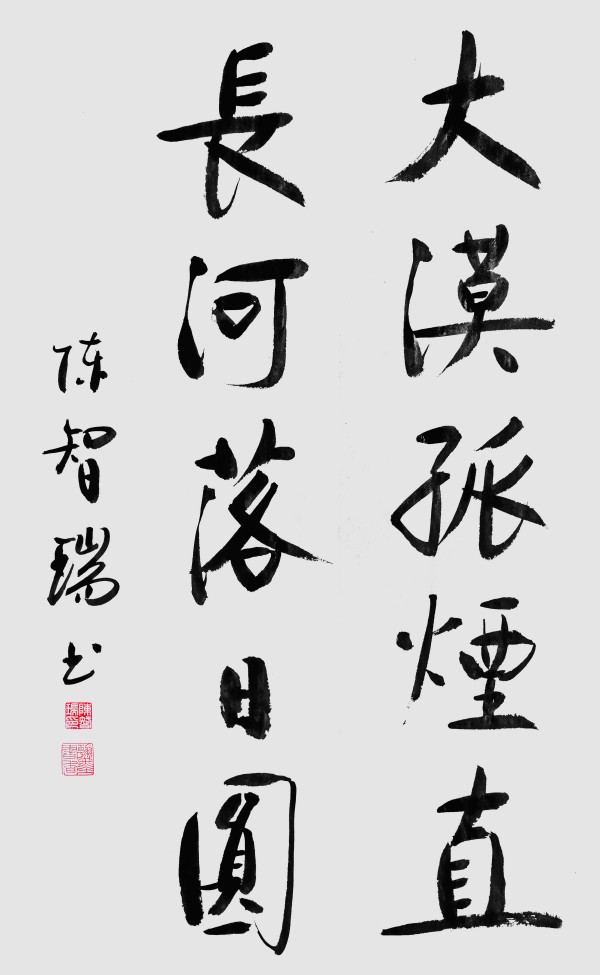 大漠孤煙直
長河落日圓
陈智瑞书